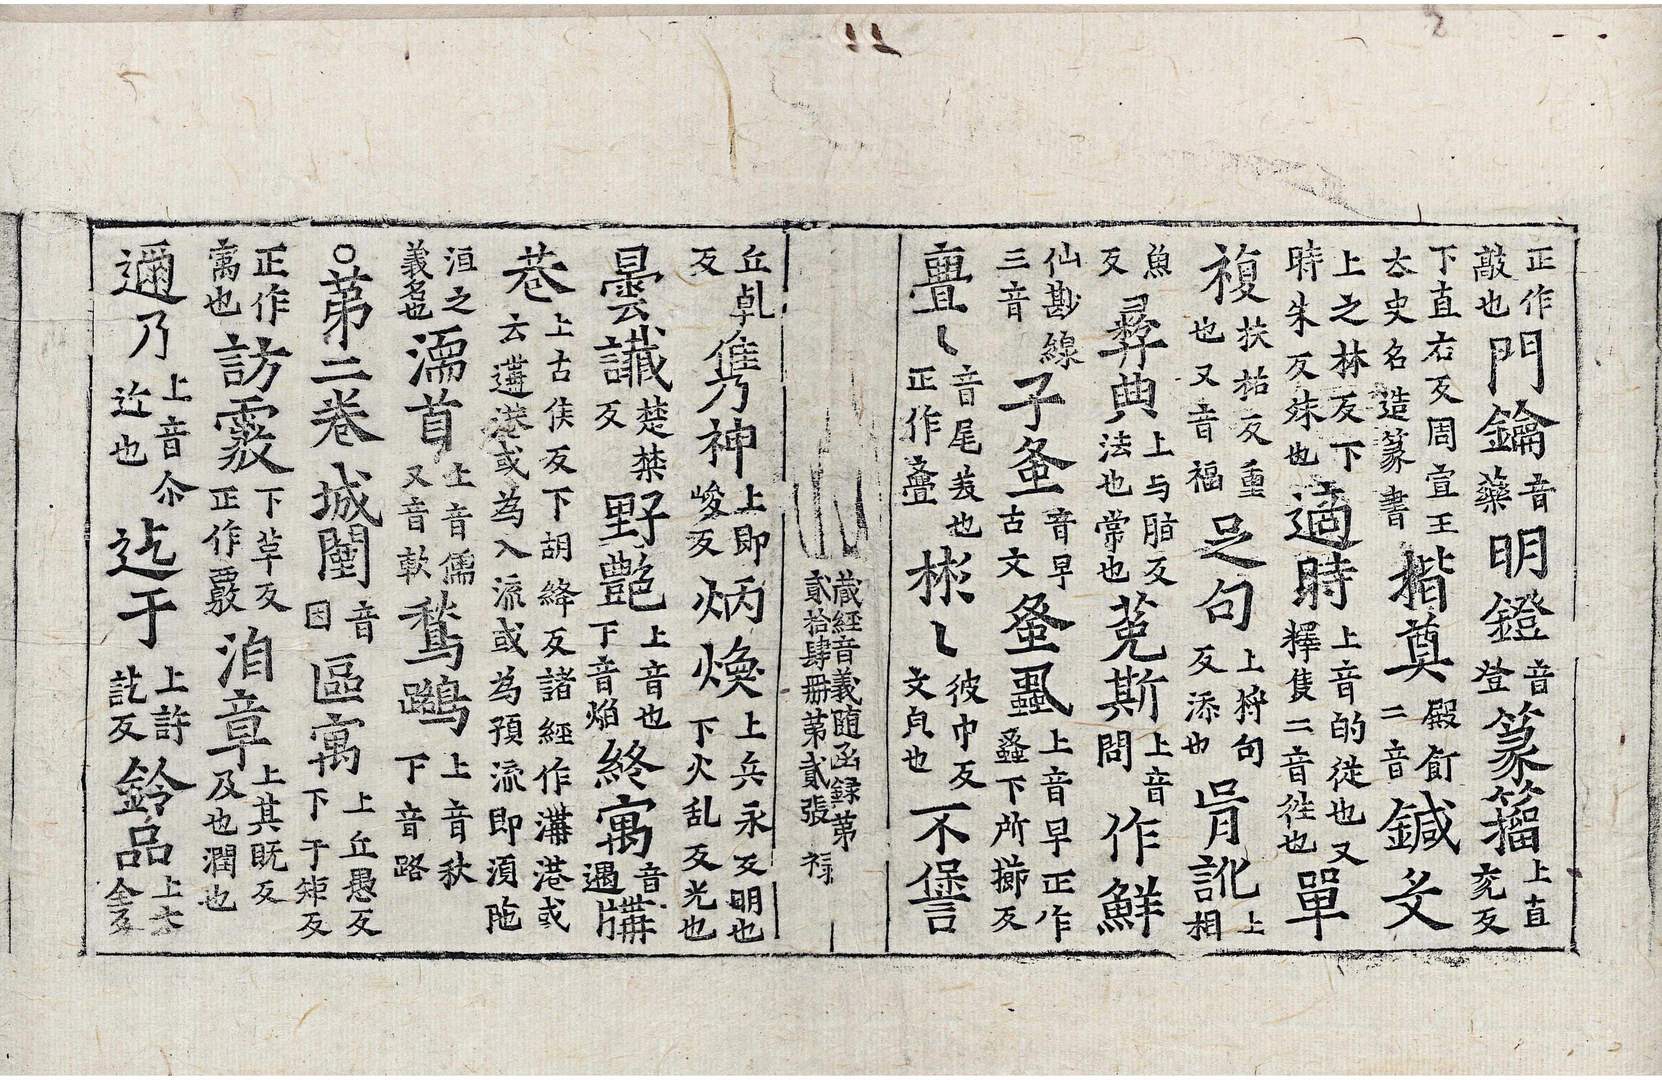 正作敲也門鑰音藥明鐙音登篆籀上直兖反
下直右反周宣王太史名造篆書揩奠殿飣二音鍼殳
上之林反下時朱反殊也適時上音的從也又釋隻二音往也單
複扶祐反重也又音福足句上將句反添也胥訛上相
魚反彛典上与脂反法也常也莬斯上音問作鮮
仙尠線三音子蚤音早古文蚤蝨上音早正作蚤下所櫛反
亹〻音尾美也正作亹彬〻彼巾反文皃也不諐
藏經音義随函録第貳拾肆冊第貳張 禄
丘乹反儁神上即峻反炳煥上兵永反明也下火乱反光也
曇讖楚禁反野豔上音也下音焰終寓音遇
巷上古侯反下胡絳反諸經作溝港或云遘港或為入流或為預流即湏陁
洹之義名也濡首上音儒又音軟鶖鷺上音秋下音路
○第二卷城闉音因區寓上丘愚反下于矩反
正作寓也訪覈下草反正作覈洎章上其既反及也潤也
邇乃上音尒近也迄于上許訖反鈐品上金反